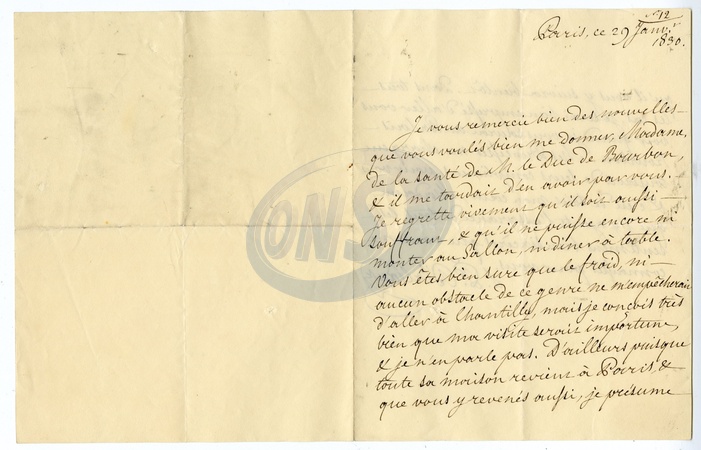 n° 12
Paris, ce 29 Janv.r
1830.
Je vous remercie bien des nouvelles
que vous voulés bien me donner, Madame,
de la santé de M. le Duc de Bourbon,
& il me tardait d'en avoir par vous.
Je regrette vivement qu'il soit aussi
souffrant, & qu'il ne puisse encore ni
monter au Sallon, ni diner à table.
Vous êtes bien sure que le froid, ni
aucun obstacle de ce genre ne m'empêcherait
d'aller à Chantilly, mais je conçois très
bien que ma visite serait importune,
& je n'en parle pas. D'ailleurs puisque
toute sa maison revient à Paris, &
que vous y revenés aussi, je présume
ONS